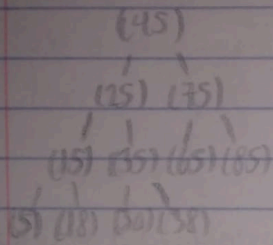 (45)
(25) (75)
(15) (35) (65) (85)
(5) (18) (30) (38)